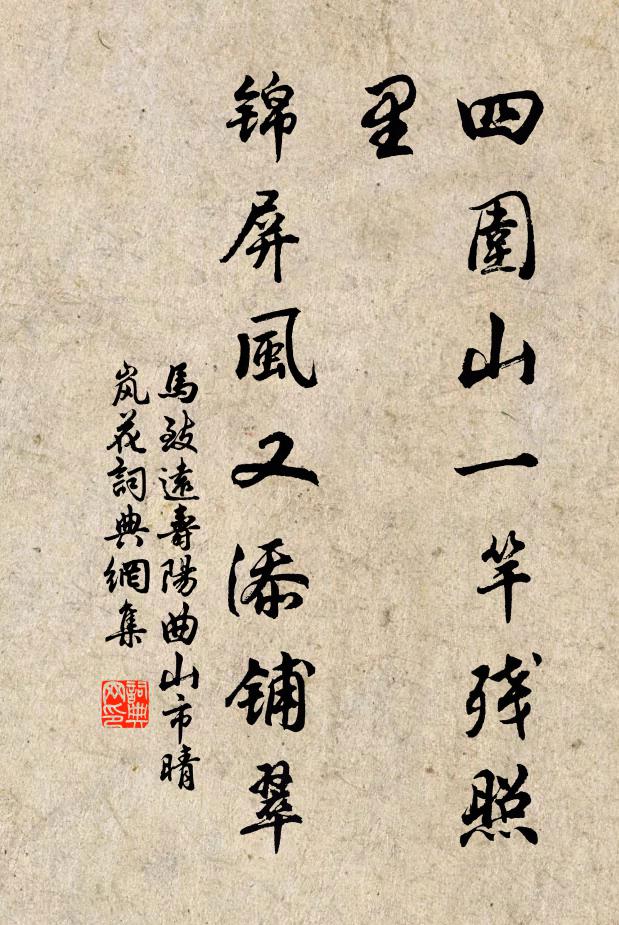 四圍山一竿残照
里
锦屏風又添铺翠
馬致遠壽陽曲山市晴
岚花詞典網集
詞典
网印